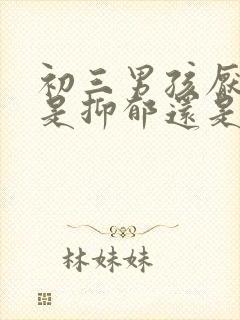 初三男孩厭
是抑郁還是
林妹妹